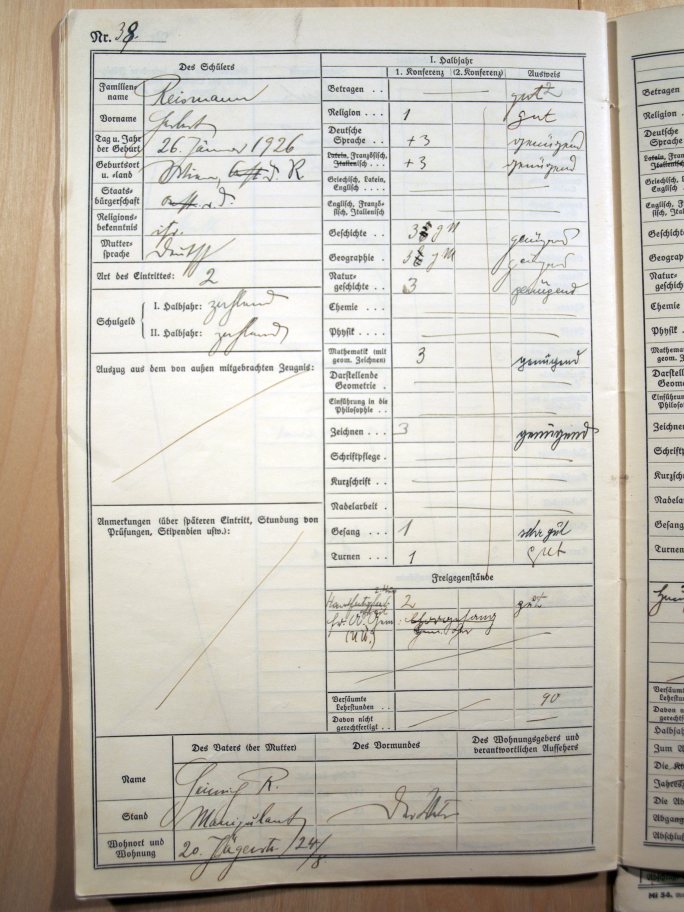 Nr. 38.
Des Schülers
Familien-
name Reismann
Vorname Herbert
Tag u. Jahr
der Geburt 26. Jänner 1926
Geburtsort
u. -land Wien, d. R.
Staats-
bürgerschaft d.
Religions-
bekenntnis isr.
Mutter-
sprache Deutsch
Art des Eintrittes: 2
Schulgeld
I. Halbjahr: zahlend
II. Halbjahr: zahlend
Auszug aus dem von außen mitgebrachten Zeugnis:
Anmerkungen (über späteren Eintritt, Stundung von
Prüfungen, Stipendien usw.):
I. Halbjahr
1. Konferenz (2. Konferenz) Ausweis
Betragen . . gut
Religion . . 1 gut
Deutsche
Sprache . . +3 genügend
Latein, Französisch,
Italienisch . . +3 genügend
Griechisch, Latein,
Englisch . . . .
Englisch, Franzö-
sisch, Italienisch
Geschichte . . 3 genügend
Geographie . genügend
Natur-
geschichte . . 3 genügend
Chemie . . .
Physik . . . .
Mathematik (mit
geom. Zeichnen) 3 genügend
Darstellende
Geometrie .
Einführung in die
Philosophie . .
Zeichnen . . . 3 genügend
Schriftpflege .
Kurzschrift . .
Nadelarbeit .
Gesang . . . 1 sehr gut
Turnen . . . 1 gut
Freigegenstände
2 gut
Chorgesang
Versäumte
Lehrstunden . . 90
Davon nicht
gerechtfertigt . .
Des Vaters (der Mutter) Des Vormundes Des Wohnungsgebers und
verantwortlichen Aufsehers
Name Heinrich R.
Stand Manipulant Der Vater
Wohnort und
Wohnung 20. Jägerstr. 24/8
Betragen
Religion
Deutsche
Sprache
Geographie
Natur-
geschichte
Chemie
Physik
Zeichnen
Gesang
Turnen